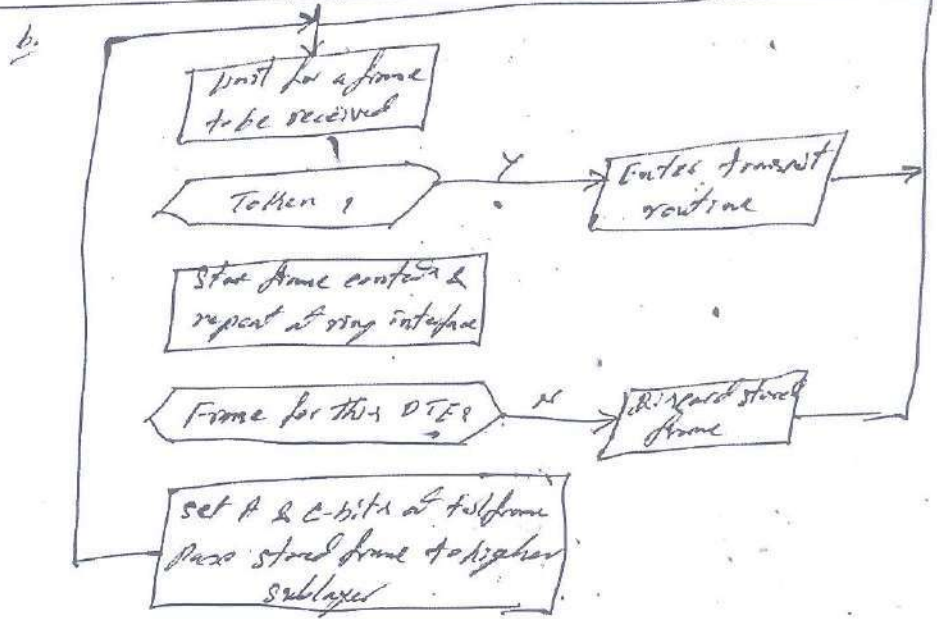 b.
Wait for a frame
to be received
Token ?
Y
Enter transmit
routine
Store frame contents &
repeat at ring interface
Frame for this DTE?
N
Discard stored
frame
set A & C-bits at tail frame
Pass stored frame to higher
sublayer